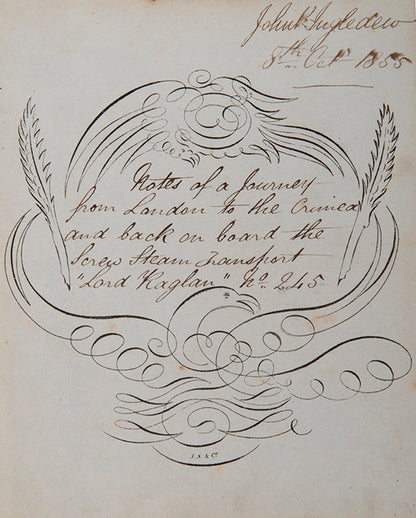 John K Ingledew
8th Oct 1855
Notes of a Journey
from London to the Crimea
and back on board the
Screw Steam Transport
"Lord Raglan" No. 245
J.S.&Co.